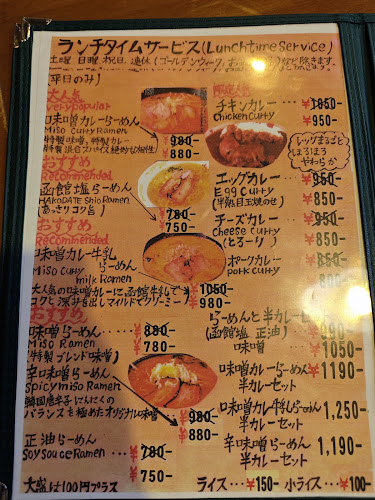 ランチタイムサービス(Lunchtime Service)
土曜 日曜 祝日 連休(ゴールデンウィーク, お盆
など除きます。
(平日のみ)
大人気
Very popular
味噌カレーらーめん
Miso Curry Ramen
特製味噌、特製カレー、
特製混合スパイス絶妙な相性
980-
880-
おすすめ
Recommended
函館塩らーめん
HAKODATE Shio Ramen
(あっさりコク旨)
780-
750-
おすすめ
Recommended
味噌カレー牛乳
らーめん
Miso Curry
milk Ramen
大人気の味噌カレーに函館牛乳で
コクと深みを出しマイルドでクリーミー!
¥1050-
980-
おすすめ
味噌らーめん ‥‥ ¥880-
Miso Ramen
(特製ブレンド味噌) 780-
辛味噌らーめん
Spicy miso Ramen
韓国唐辛子にんにくの
バランスを極めたオリジナル味噌 ‥‥ ¥980-
¥880-
正油らーめん
Soy Sauce Ramen
¥780-
¥750-
大盛は100円プラス
チキンカレー ‥‥ ¥1050-
Chicken Curry ¥950-
レッグまるごと
ほろほろ
やわらか
エッグカレー ‥‥ ¥950-
Egg Curry
(半熟目玉焼のせ) ¥850-
チーズカレー ‥‥ ¥950-
Cheese Curry
(とろーり) ¥850-
ポークカレー ‥‥ ¥850-
pork Curry ¥800-
らーめんと半カレーセット
(函館塩 正油) ‥‥ ¥990-
味噌 ¥1050-
味噌カレーらーめん ¥1190-
半カレーセット
味噌カレー牛乳らーめん 1,250-
半カレーセット
辛味噌らーめん 1,190-
半カレーセット
ライス ‥‥ ¥150- 小ライス ‥ ¥100-